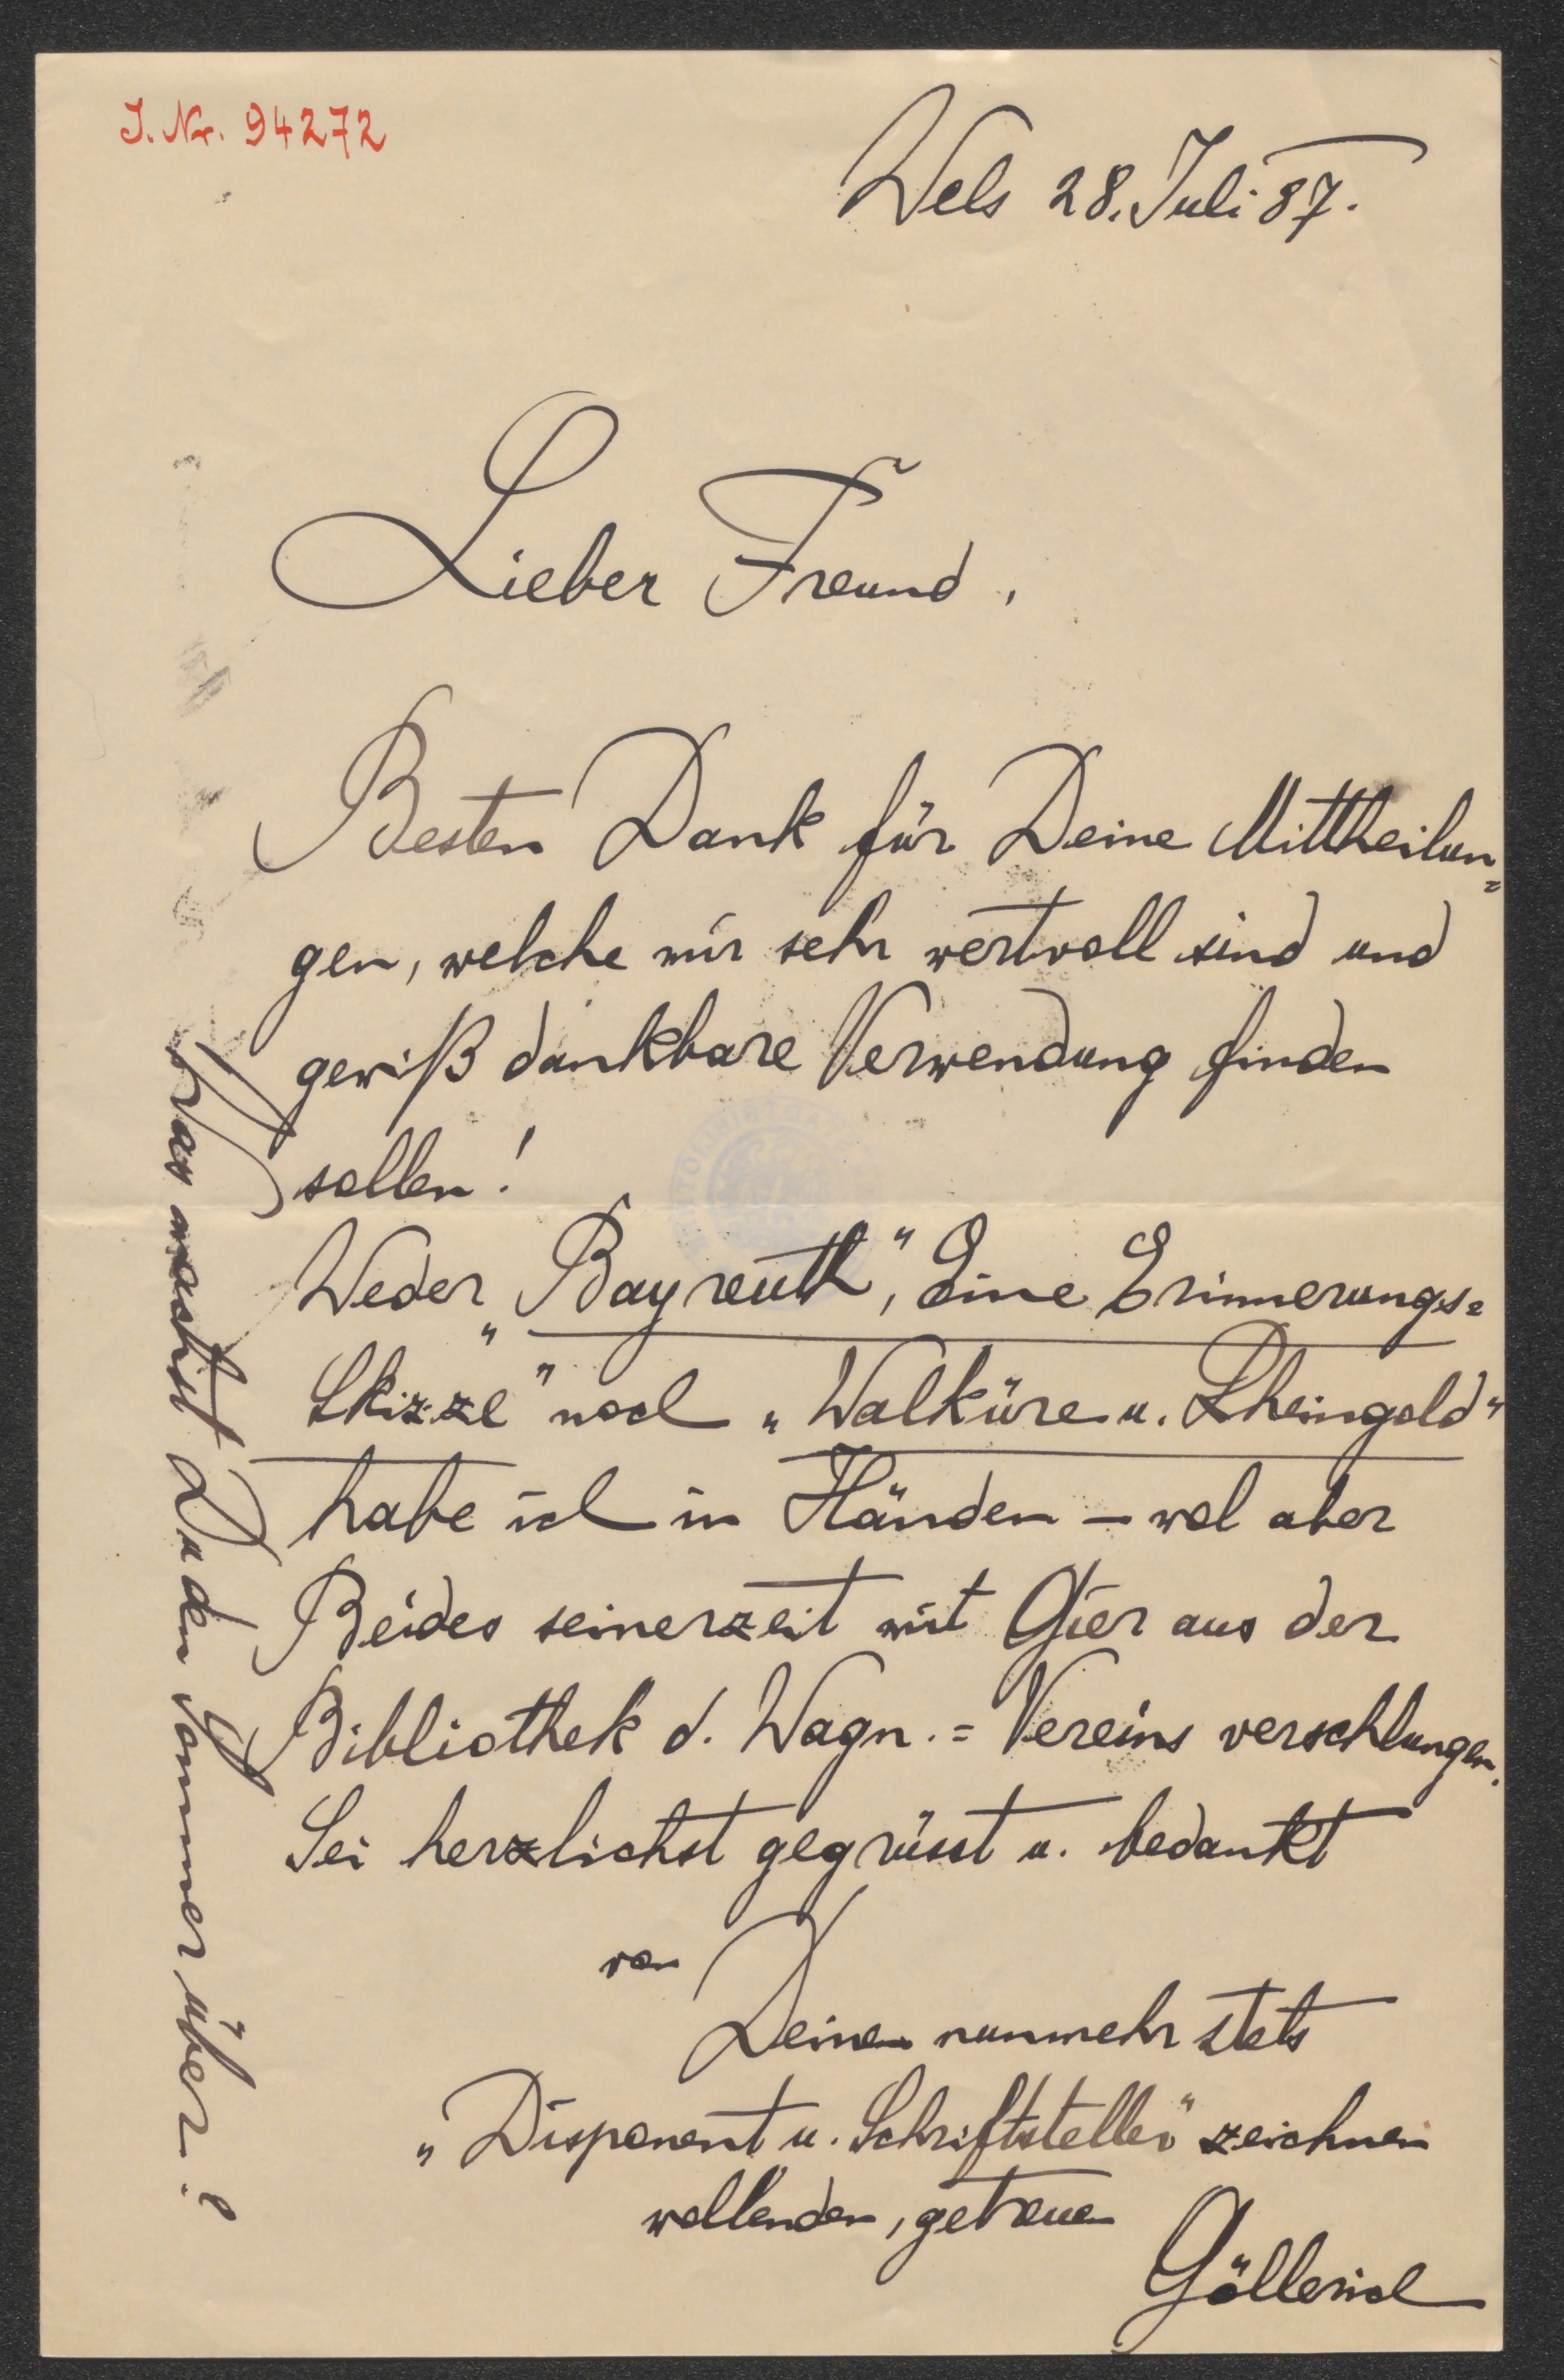 J. Nr. 94272
Wels 28. Juli 87.
Lieber Freund,
Besten Dank für Deine Mittheilun=
gen, welche mir sehr wertvoll sind und
gewiß dankbare Verwendung finden
sollen!
Weder „Bayreuth“, „Eine Erinnerungs=
Skizze“ noch „Walküre u. Rheingold“
habe ich in Händen – wol aber
Beides seinerzeit mit Gier aus der
Bibliothek d. Wagn.=Vereins verschlungen.
Sei herzlichst gegrüsst u. bedankt
von
Deinem nunmehr stets
„Disponent u. Schriftsteller“ zeichnen
wollenden, getreuen
Göllerich
Was machst Du den Sommer über?